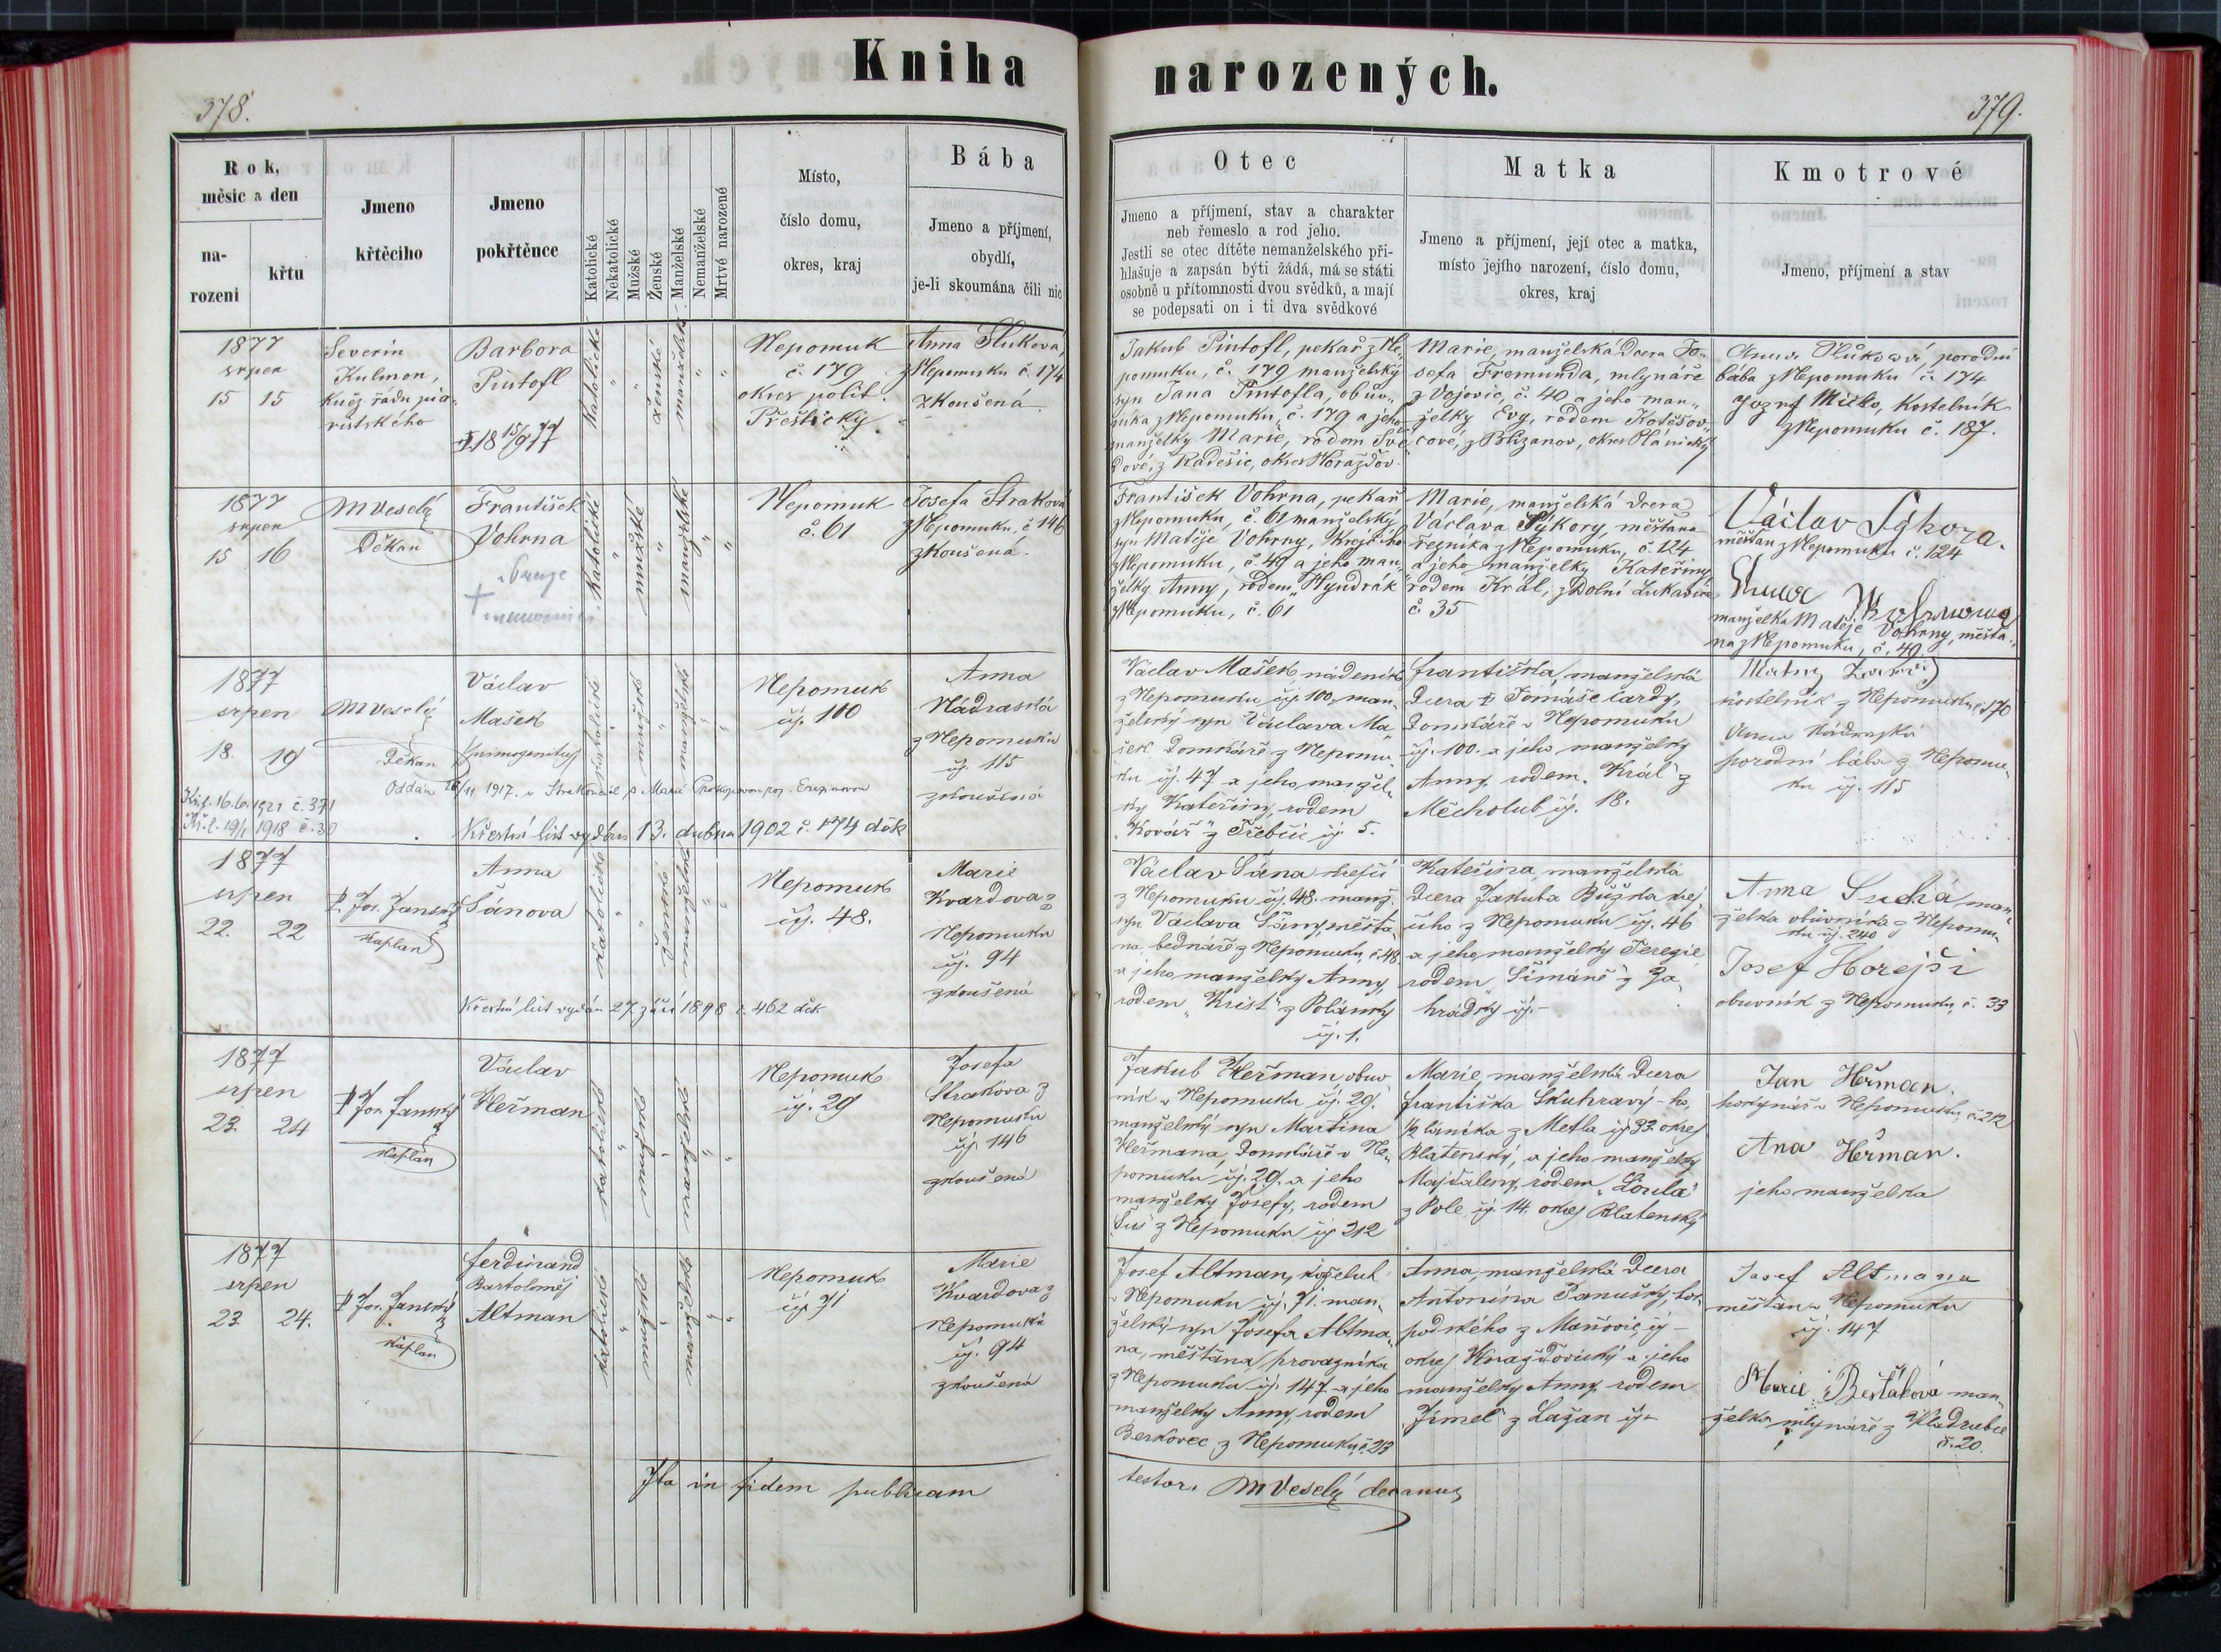 Kniha narozených.
378.
379.
Rok,
měsic a den
na-
rozeni
křtu
Jmeno
křtěciho
Jmeno
pokřtěnce
Katolické
Nekatolické
Mužské
Ženské
Manželské
Nemanželské
Mrtvé narozené
Místo,
číslo domu,
okres, kraj
Bába
Jmeno a příjmení,
obydlí,
je-li skoumána čili nic
Otec
Jmeno a příjmení, stav a charakter
neb řemeslo a rod jeho.
Jestli se otec dítěte nemanželského při-
hlašuje a zapsán býti žádá, má se státi
osobně u přítomnosti dvou svědků, a mají
se podepsati on i ti dva svědkové
Matka
Jmeno a příjmení, její otec a matka,
místo jejího narození, číslo domu,
okres, kraj
Kmotrové
Jmeno, příjmení a stav
1877
srpen
15 15
Severin
Kulmon,
kněz řádu pia-
ristského
Barbora
Pintofl
† 18 15/9 77
katolické
ženské
manželské
Nepomuk
č. 179
okres polit.
Přeštický
Anna
z Nepomuku č. 174
zkoušená.
Jakub Pintofl, pekař z Ne-
pomuku, č. 179 manželský
syn Jana Pintofla, obuv-
níka z Nepomuku, č. 179 a jeho
manželky Marie, rodem Švé-
dové, z Radešic, okres Horažďov.
Marie, manželská dcera Jo-
sefa Fremunda, mlynáře
z Vojovic, č. 40 a jeho man-
želky Evy, rodem Kotěšov-
cové, z Blizanov, okres Plánický
porodní
bába z Nepomuku č. 174
Jozef Míčko, kostelník
z Nepomuku č. 187.
1877
srpen
15 16
M Veselý
Děkan
František
Vohrna
katolické
mužské
manželské
Nepomuk
č. 61
Josefa Straková
z Nepomuku, č. 146
zkoušená.
František Vohrna, pekař
z Nepomuku, č. 61 manželský
syn Matěje Vohrny, krejčího
z Nepomuku, č. 40 a jeho man-
želky Anny, rodem „Hyndrák
z Nepomuku, č. 61
Marie, manželská dcera
Václava Sýkory, měšťana
řezníka z Nepomuku, č. 124
a jeho manželky Kateřiny
rodem Král, z Dolní Lukavice
č. 35
Václav Sýkora.
měšťan z Nepomuku č. 124
Anna
manželka Matěje Vohrny, měšťa-
na z Nepomuku, č. 40.
1877
srpen
18. 19
M Veselý
Děkan
Václav
Mašek
(primogenitus)
katolické
mužské
manželské
Nepomuk
čj. 100
Anna
Nádraská
z Nepomuku
čj. 115
zkoušená
Oddán 26/11 1917. v Strakonicích s Marií
Kř. l. 16. 6. 1921 č. 371
Kř. l. 19/1 1918 č. 30
Křestní list vydán 13. dubna 1902 č. 174 děk
Václav Mašek, nádeník
z Nepomuku čj. 100, man-
želský syn Václava Ma-
šek domkáře z Nepomu-
ku čj. 47 a jeho manžel-
ky Kateřiny, rodem
„Kovář" z Třebčic čj. 5.
Františka, manželská
dcera † Tomáše Čardy,
domkáře v Nepomuku
čj. 100. a jeho manželky
Anny, rodem „Král" z
Měcholup čj. 18.
kostelník z Nepomuku č. 170
Anna Nádraská
porodní bába z Nepomu-
ku čj. 115
1877
srpen
22. 22
P. Jos. Janský
Kaplan
Anna
Šánova
katolické
ženské
manželské
Nepomuk
čj. 48.
Marie
Kvardova z
Nepomuku
čj. 94
zkoušená
Křestní list vydán 27. září 1898 č. 462 děk
Václav Šána krejčí
z Nepomuku čj. 48. manž.
syn Václava Šány, měšťa-
na bednáře z Nepomuku, č. 48
a jeho manželky Anny,
rodem „Krist" z Polánky
čj. 1.
Kateřina, manželská
dcera Jakuba Bůžka krej-
čího z Nepomuku čj. 46
a jeho manželky Terezie
rodem „Šimáně" z Za-
hrádky čj. -
Anna Suchá man-
želka obůvníka z Nepomu-
ku čj. 240
Josef Horejši
obuvník z Nepomuku, č. 33
1877
srpen
23. 24
P. Jos. Janský
Kaplan
Václav
Heřman
katolické
mužské
manželské
Nepomuk
čj. 29
Josefa
Straková z
Nepomuku
čj. 146
zkoušená
Jakub Heřman, obuv-
ník v Nepomuku čj. 29.
manželský syn Martina
Heřmana, domkáře v Ne-
pomuku čj. 29. a jeho
manželky Josefy, rodem
„Šus" z Nepomuku čj 212
Marie, manželská dcera
Františka Skuhravý-ho,
½ láníka z Metla čj 33. okres
Blatenský, a jeho manželky
Majdaleny, rodem „Loula"
z Pole čj 14. okres Blatenský
Jan Heřman.
v Nepomuku, č. 212
Ana Heřman.
jeho manželka
1877
srpen
23. 24.
P. Jos. Janský
Kaplan
Ferdinand
Bartoloměj
Altman
katolické
mužské
manželské
Nepomuk
čj. 71
Marie
Kvardova z
Nepomuku
čj. 94
zkoušená
Josef Altman, koželuh
v Nepomuku čj. 71. man-
želský syn Josefa Altma-
na, měšťana provazníka
z Nepomuku čj. 147 a jeho
manželky Anny, rodem
Berkovec z Nepomuku, č. 213
Anna, manželská dcera
Antonína Panušky, hos-
podského z Maňovic, čj -
okres Horažďovický a jeho
manželky Anny rodem
„Jimel" z Lažan čj -
Josef Altmann
měšťan v Nepomuku
čj. 147
Marie Bešťáková man-
želka mlynáře z Kladrubce
č. 20.
Ita in fidem publicam
testor. M Veselý decanus